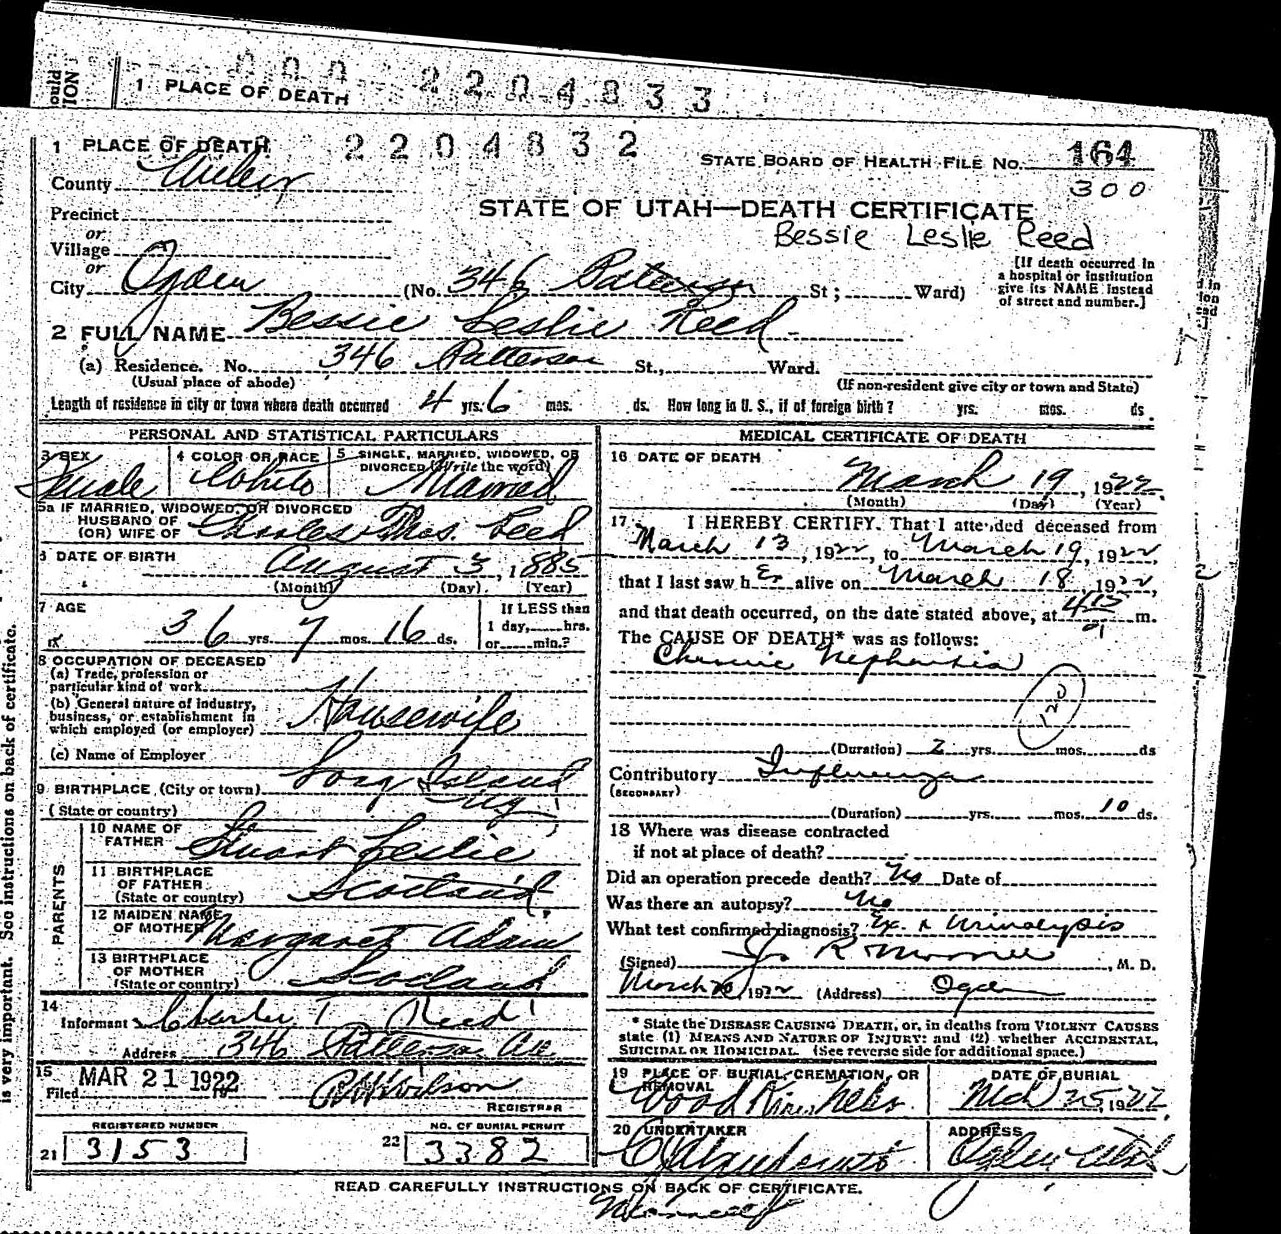 1 PLACE OF DEATH
2204833
1 PLACE OF DEATH 2204832
STATE BOARD OF HEALTH FILE No. 164
300
County Weber
STATE OF UTAH—DEATH CERTIFICATE
Precinct
Bessie Leslie Reed
or
Village
or
City Ogden (No. 346 Patterson St; Ward)
[If death occurred in
a hospital or institution
give its NAME instead
of street and number.]
2 FULL NAME Bessie Leslie Reed
(a) Residence. No. 346 Patterson St., Ward.
(Usual place of abode) (If non-resident give city or town and State)
Length of residence in city or town where death occurred 4 yrs. 6 mos. ds. How long in U. S., if of foreign birth? yrs. mos. ds.
PERSONAL AND STATISTICAL PARTICULARS
3 SEX 4 COLOR OR RACE 5 SINGLE, MARRIED, WIDOWED, OR
DIVORCED (Write the word)
Female White Married
5a IF MARRIED, WIDOWED, OR DIVORCED
HUSBAND OF
(OR) WIFE OF Charles Thos. Reed
6 DATE OF BIRTH August 3, 1885
(Month) (Day) (Year)
7 AGE 36 yrs. 7 mos. 16 ds.
If LESS than
1 day, hrs.
or min.?
8 OCCUPATION OF DECEASED
(a) Trade, profession or
particular kind of work
(b) General nature of industry,
business, or establishment in
which employed (or employer) Housewife
(c) Name of Employer
9 BIRTHPLACE (City or town) Long Island
(State or country)
PARENTS
10 NAME OF
FATHER Stuart Leslie
11 BIRTHPLACE
OF FATHER
(State or country) Scotland
12 MAIDEN NAME
OF MOTHER Margaret Adam
13 BIRTHPLACE
OF MOTHER
(State or country) Scotland
14
Informant Charles T Reed
Address 346 Patterson Ave
15
Filed MAR 21 1922 Wilson
REGISTRAR
REGISTERED NUMBER
21 3153
NO. OF BURIAL PERMIT
22 3382
MEDICAL CERTIFICATE OF DEATH
16 DATE OF DEATH
March 19, 1922
(Month) (Day) (Year)
17 I HEREBY CERTIFY. That I attended deceased from
March 13, 1922, to March 19, 1922
that I last saw her alive on March 18, 1922,
and that death occurred, on the date stated above, at 415 m.
The CAUSE OF DEATH* was as follows:
Chronic Nephritis
120
(Duration) 2 yrs. mos. ds
Contributory Influenza
(SECONDARY)
(Duration) yrs. mos. 10 ds.
18 Where was disease contracted
if not at place of death?
Did an operation precede death? No Date of
Was there an autopsy? No
What test confirmed diagnosis? Ex & Urinalysis
(Signed) R , M. D.
March 20, 1922 (Address) Ogden
* State the DISEASE CAUSING DEATH, or, in deaths from VIOLENT CAUSES
state (1) MEANS AND NATURE OF INJURY: and (2) whether ACCIDENTAL,
SUICIDAL OR HOMICIDAL. (See reverse side for additional space.)
19 PLACE OF BURIAL, CREMATION, OR
REMOVAL
DATE OF BURIAL
Wood River, Nebr. Mch 25, 1922
20 UNDERTAKER ADDRESS
Ogden Utah
READ CAREFULLY INSTRUCTIONS ON BACK OF CERTIFICATE.
is very important. See instructions on back of certificate.